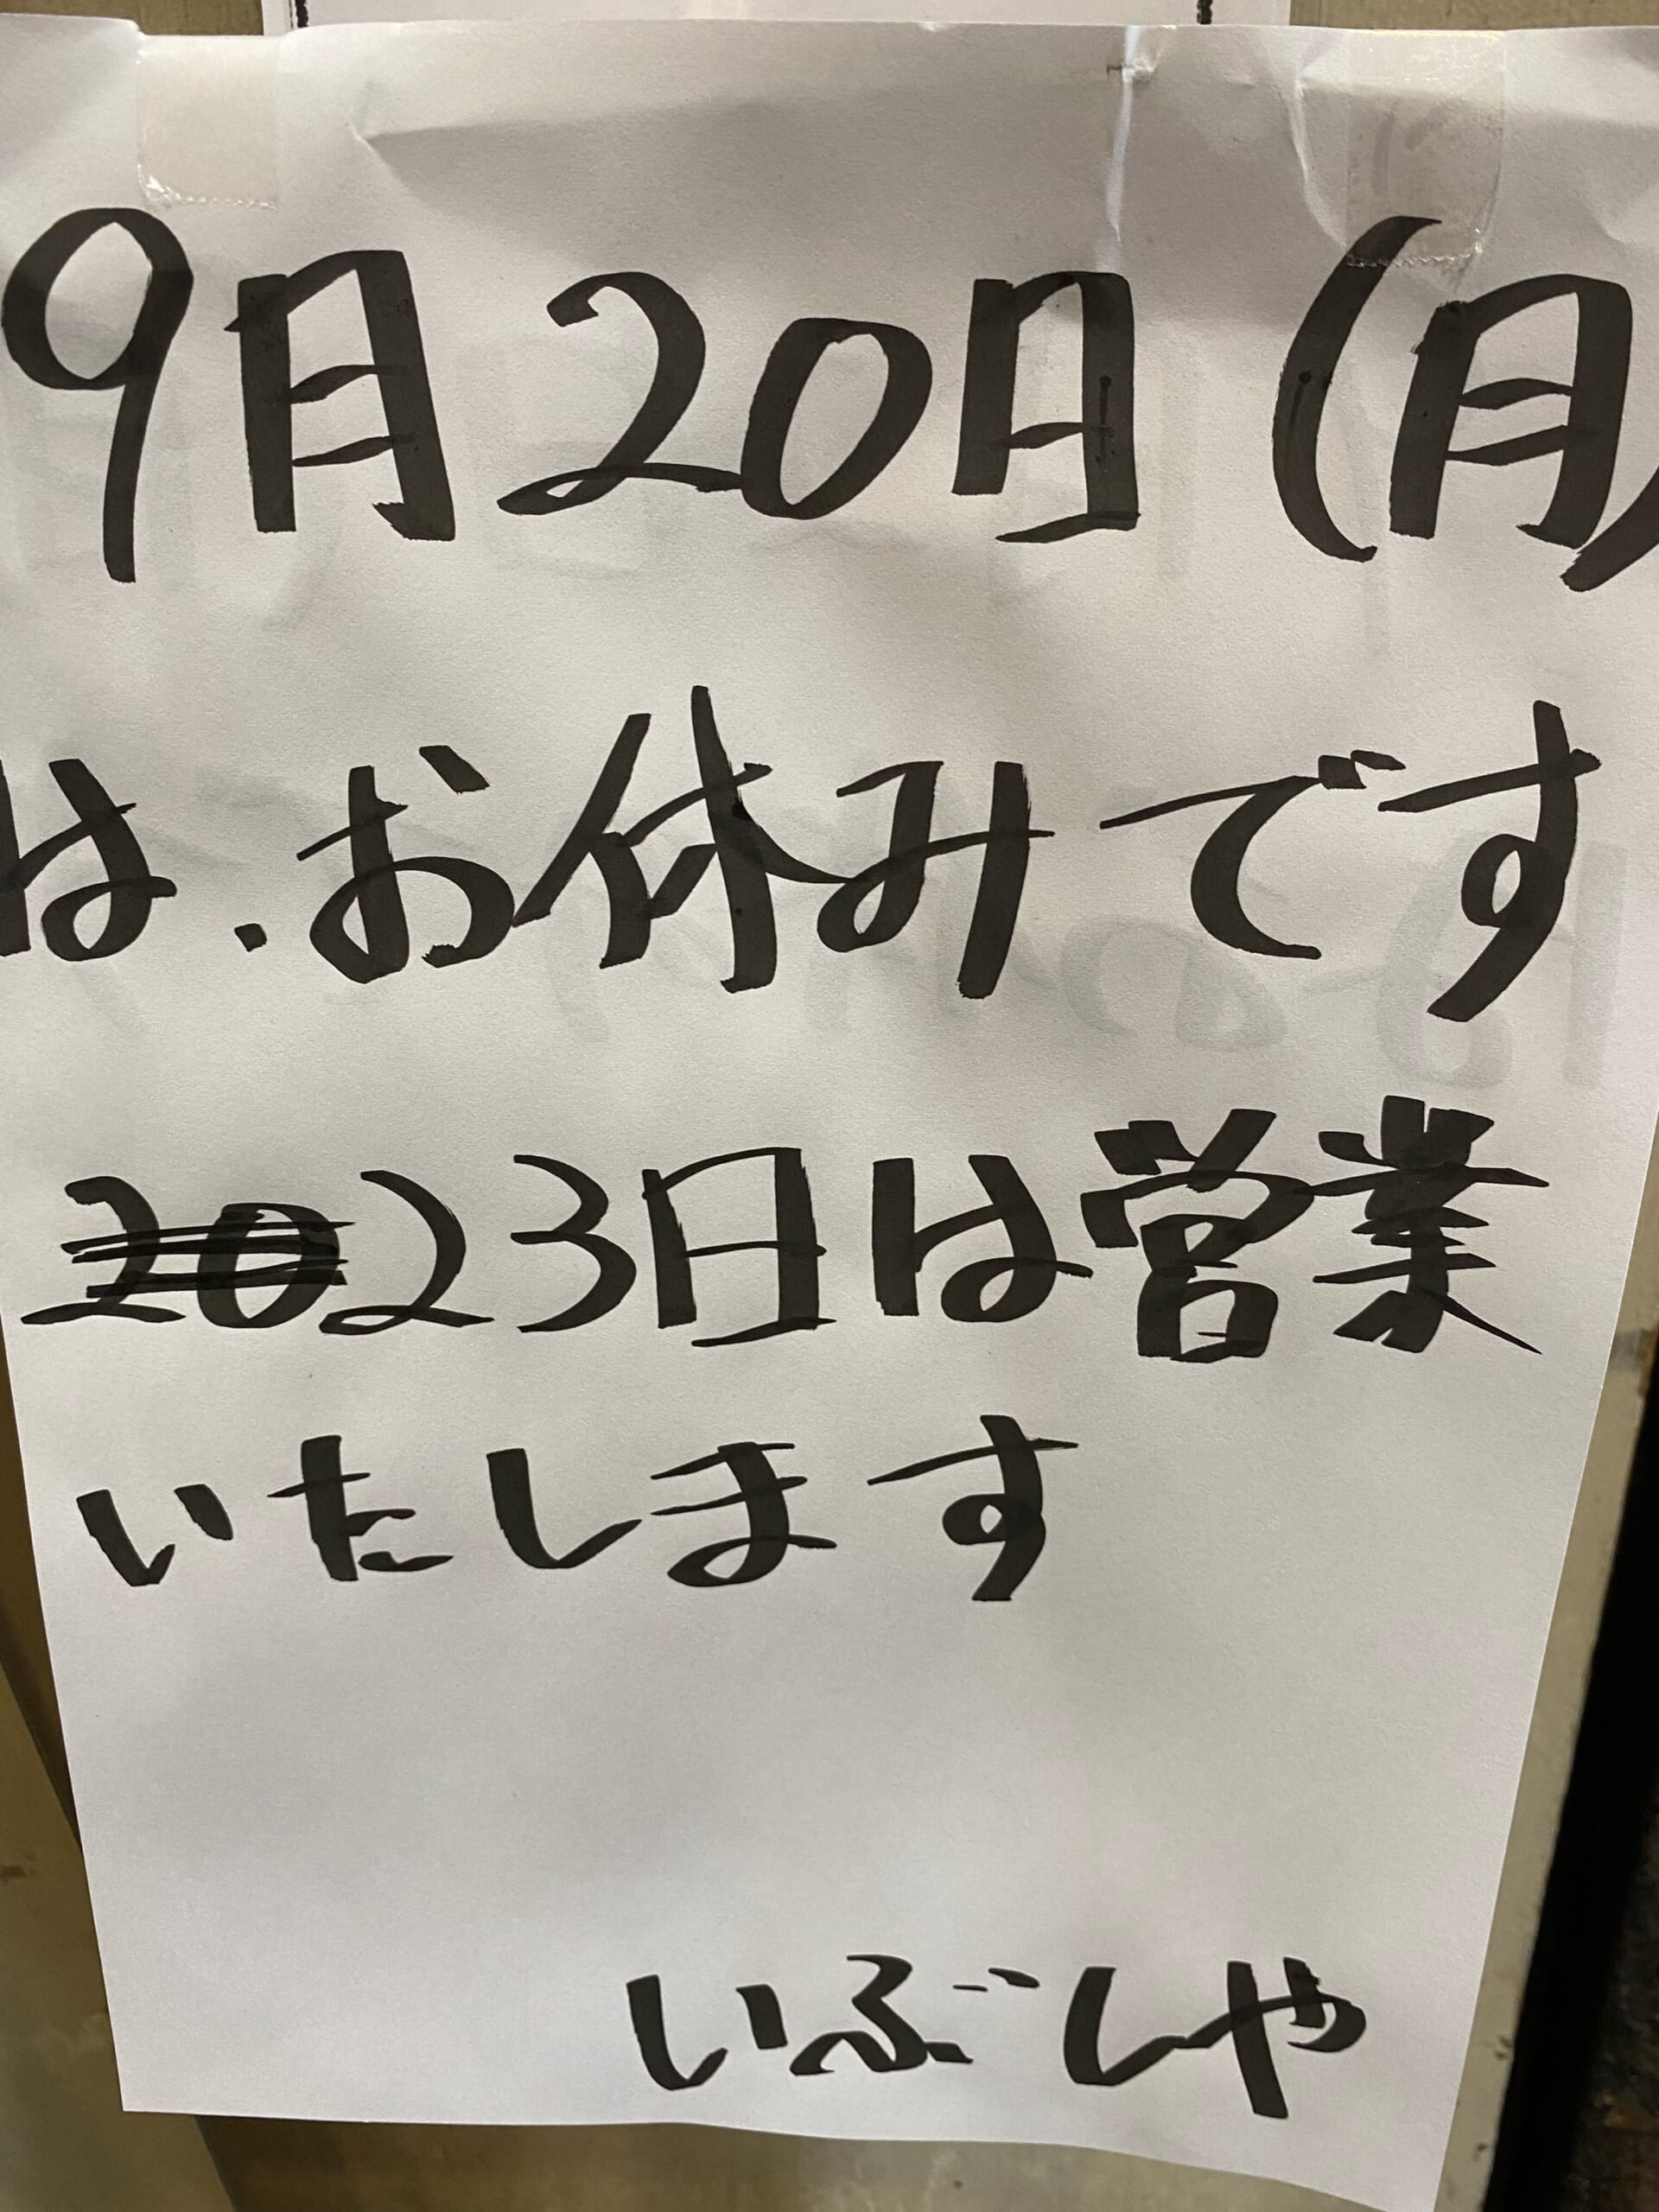 9月20日(月)
は.お休みです
2023日は営業
いたします
いぶしや